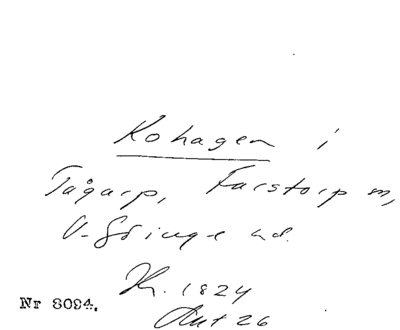 Kohagen i
Tågarp, Farstorp m,
V-Göinge hd.
Kh. 1824
Akt 26
Nr 8094.